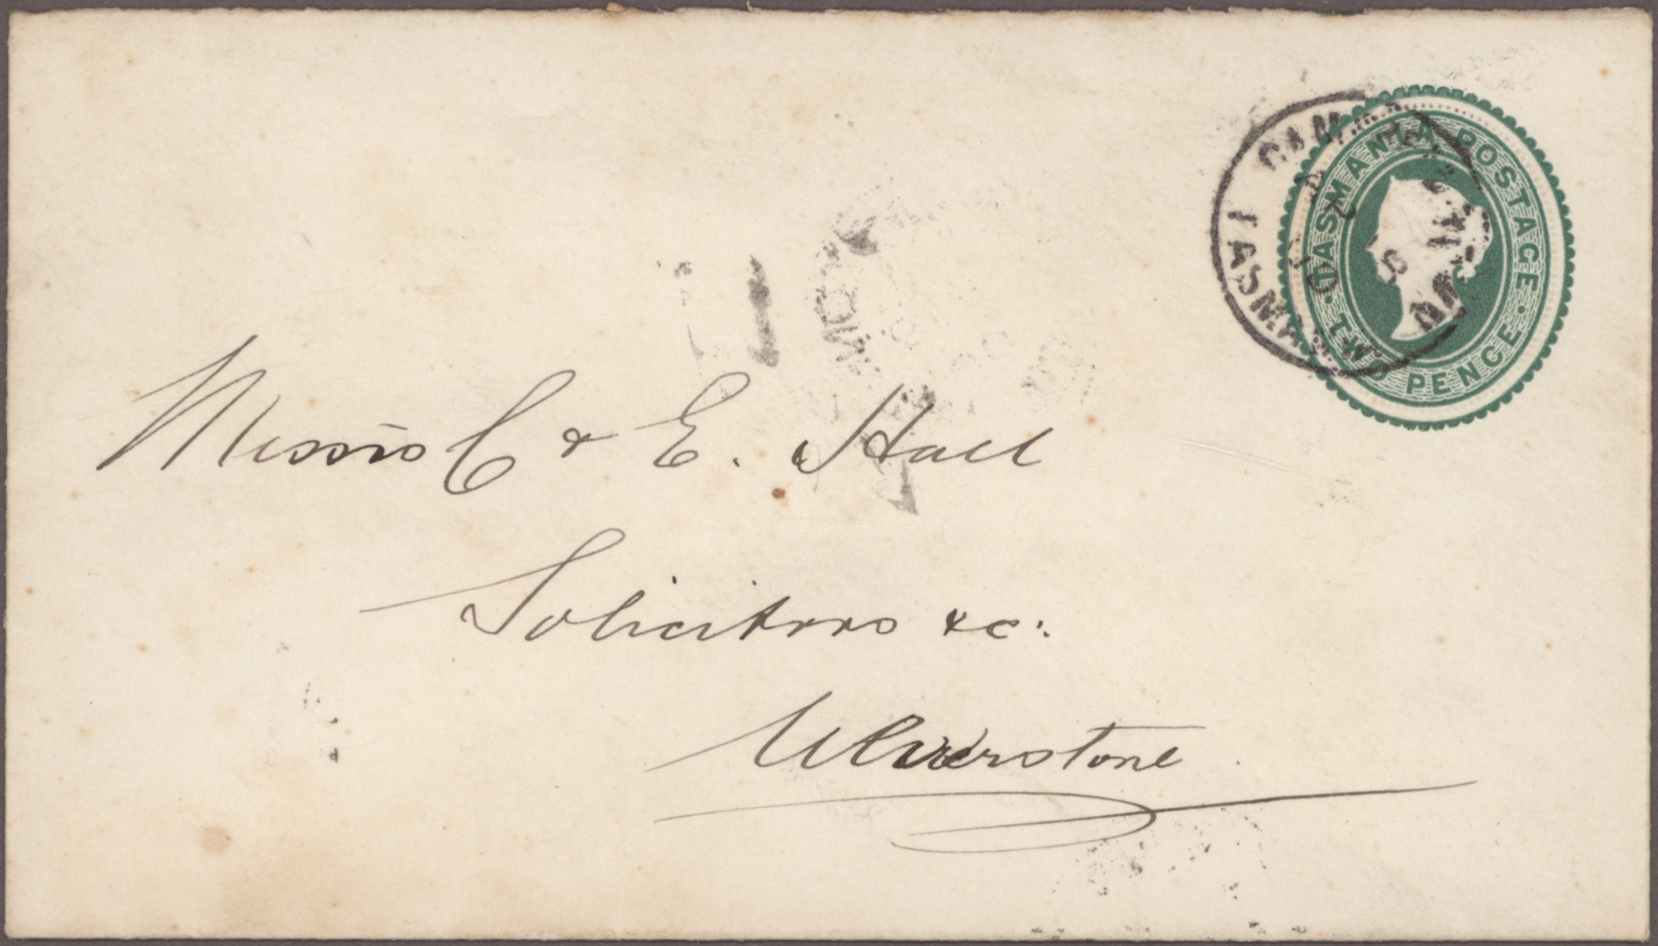 TASMANIA POSTAGE.
TWO PENCE.
TASMANIA
Messrs C & E. Hall
Solicitors &c:
Ulverstone